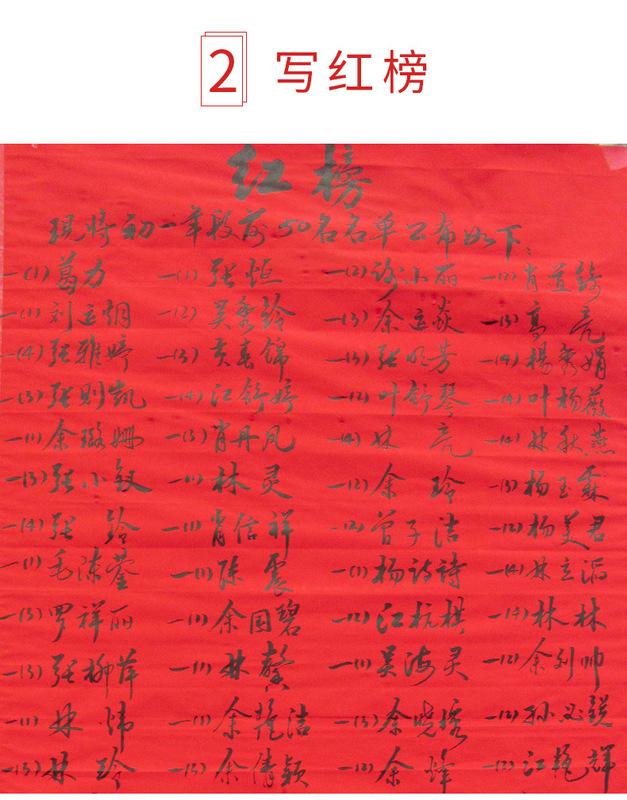 2 写红榜
红榜
现将初一年段前50名名单公布如下：
一(1)葛力 一(1)张恒 一(2)谢小丽 一(2)肖道锜
一(1)刘运烟 一(2)吴黎铃 一(3)余运焱 一(3)高亮
一(4)张雅婷 一(3)黄春锦 一(3)张明芳 一(4)杨秀娟
一(3)张则凯 一(4)江舒婷 一(2)叶舒琴 一(4)叶杨薇
一(1)余璐姗 一(3)肖丹凤 一(4)林亮 一(4)林秋燕
一(3)张小钗 一(1)林灵 一(2)余玲 一(3)杨玉霖
一(4)张铃 一(1)肖信祥 一(2)曾子洁 一(2)杨美君
一(1)毛 一(1)陈震 一(1)杨诗诗 一(4)林立滔
一(3)罗祥丽 一(1)余国碧 一(2)江杭棋 一(4)林林
一(3)张柳萍 一(1)林馨 一(1)吴海灵 一(2)余列帅
一(1)林炜 一(1)余艳洁 一(3)余晓 一(2)孙
一(3)林玲 一(3)余倩颖 一(2)余烽 一(2)江艳辉